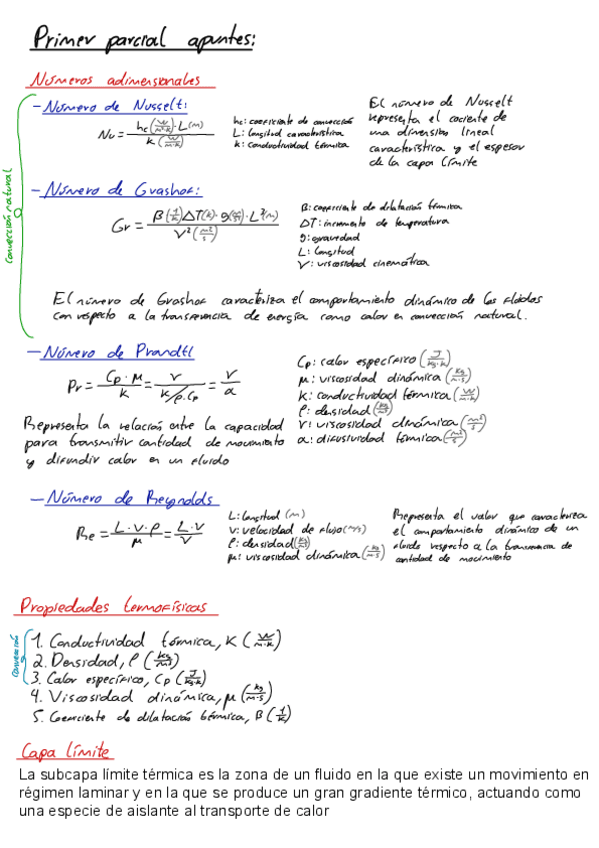 Primer parcial apuntes:
Números adimensionales
- Número de Nusselt:
Nu = hc (W/m²·K) · L (m) / k (W/m·K)
hc: coeficiente de convección
L: longitud característica
k: conductividad térmica
El número de Nusselt
representa el cociente de
una dimensión lineal
característica y el espesor
de la capa límite
Convección natural
- Número de Grashof:
Gr = β (1/K) ΔT (K) · g (m/s²) · L³ (m) / V² (m²/s)
β: coeficiente de dilatación térmica
ΔT: incremento de temperatura
g: gravedad
L: longitud
V: viscosidad cinemática
El número de Grashof caracteriza el comportamiento dinámico de los fluidos
con respecto a la transferencia de energía como calor en convección natural.
- Número de Prandtl
Pr = Cp · μ / k = V / k/ρ·Cp = V / a
Cp: calor específico (J/kg·K)
μ: viscosidad dinámica (kg/m·s)
K: conductividad térmica (W/m·K)
ρ: densidad (kg/m³)
V: viscosidad dinámica (m²/s)
a: difusividad térmica (m²/s)
Representa la relación entre la capacidad
para transmitir cantidad de movimiento
y difundir calor en un fluido
- Número de Reynolds
Re = L · v · ρ / μ = L · v / V
L: longitud (m)
v: velocidad de flujo (m/s)
ρ: densidad (kg/m³)
μ: viscosidad dinámica (kg/m·s)
Representa el valor que caracteriza
el comportamiento dinámico de un
fluido respecto a la transferencia de
cantidad de movimiento
Propiedades termofísicas
Convección
1. Conductividad térmica, K (W/m·K)
2. Densidad, ρ (kg/m³)
3. Calor específico, Cp (J/kg·K)
4. Viscosidad dinámica, μ (kg/m·s)
5. Coeficiente de dilatación térmica, β (1/K)
Capa límite
La subcapa límite térmica es la zona de un fluido en la que existe un movimiento en
régimen laminar y en la que se produce un gran gradiente térmico, actuando como
una especie de aislante al transporte de calor